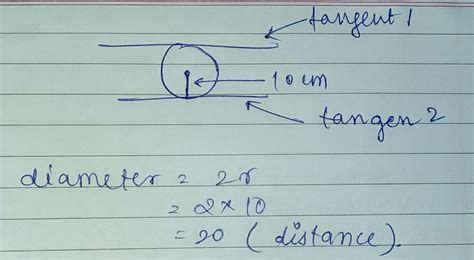 tangent 1
10 cm
tangen 2
diameter = 2r
= 2 × 10
= 20 (distance).